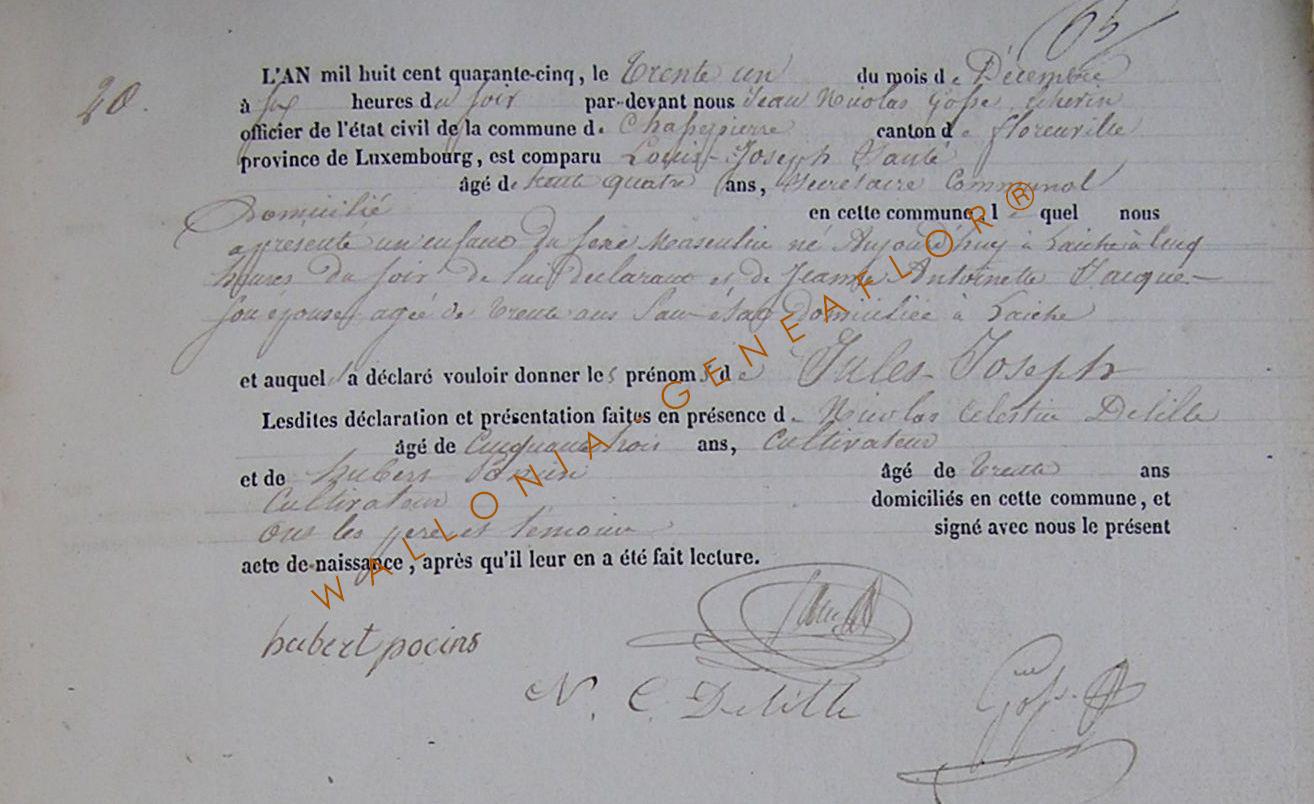 65
20.
L'AN mil huit cent quarante-cinq, le trente un du mois de Décembre
à six heures du soir par-devant nous Jean Nicolas Gosse, Échevin
officier de l'état civil de la commune de Chassepierre canton de florenville
province de Luxembourg, est comparu Louis-Joseph
âgé de trente quatre ans, Secrétaire Communal
Domicilié en cette commune, lequel nous
a présenté un enfant du sexe Masculin né Aujourd'huy à Laiche à cinq
heures du soir de lui déclarant et de Jeanne Antoinette Jacque
son épouse, agée de trente ans Sans état domiciliée à Laiche
et auquel il a déclaré vouloir donner les prénoms de Jules Joseph
Lesdites déclaration et présentation faites en présence de Nicolas Celestin Delille
âgé de Cinquante trois ans, Cultivateur
et de hubert âgé de trente ans
Cultivateur domiciliés en cette commune, et
Ont les pere et témoins signé avec nous le présent
acte de naissance, après qu'il leur en a été fait lecture.
hubert pocins
N. C. Delille
Gosse
WALLONIA-GENEAFLOR®